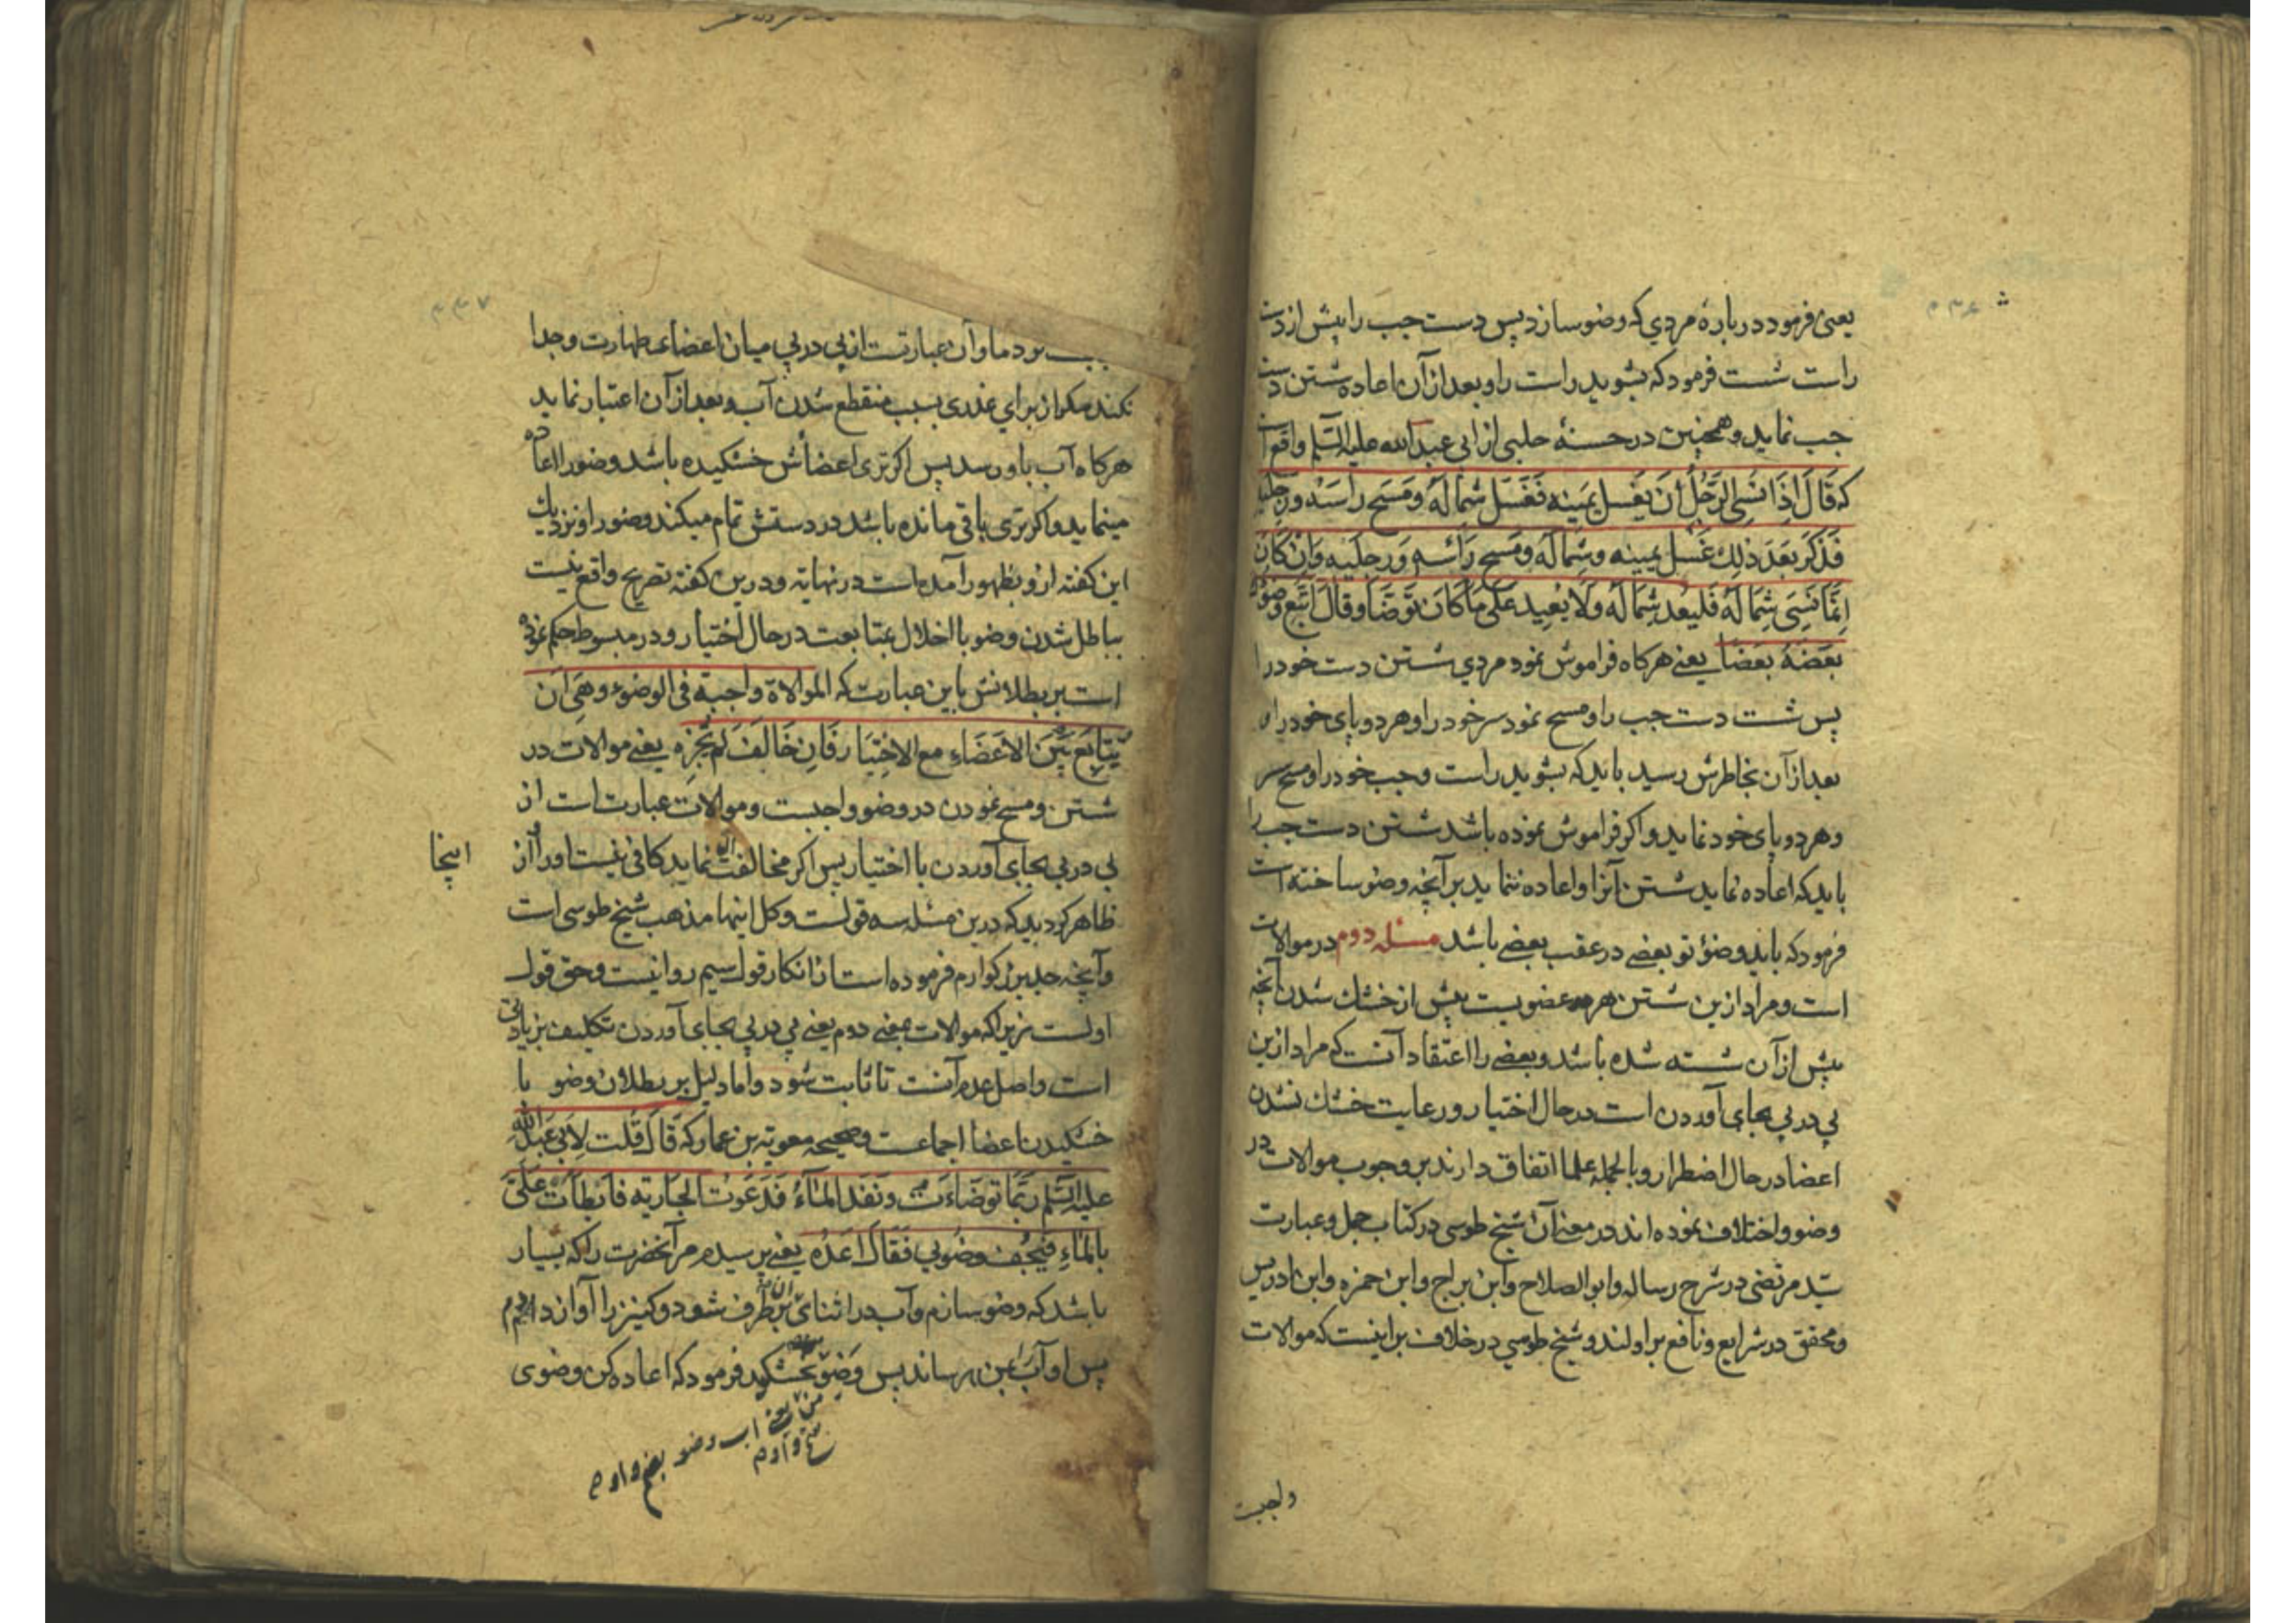 یعنی فرمود درباره مردی که وضو سازد پس دست چپ را پیش از دست
راست شست فرمود که بشوید راست را و بعد از آن اعاده شستن دست
چپ نماید و همچنین در حسنه حلبی از ابی عبد الله علیه السلم واقع است
که قَالَ اِذَا نَسِیَ الرَّجُلُ أَنْ یَغسِلَ یَمینه فَغَسَلَ شِمالَهُ وَمَسَحَ رَاسَهُ وَرِجلَیهِ
فَذَکَرَ بَعدَ ذلِكَ غَسَلَ یَمینه وشِمالَهُ ومَسح رَاسَهِ وَرِجلَیهِ وَاِنْ کَانَ
اِنَّمَا نَسِیَ شِمَالَهُ فَلیُعد شِمالَهُ وَلَا یُعِید عَلَی مَا کَانَ تَوَضَّأَ وقالَ اَتبِع وضُوءَكَ
بَعضَهُ بَعضًا یعنے هرکاه فراموش نمود مردی شستن دست خود را
پس شست دست چپ را و مسح نمود سر خود را و هر دو پای خود را و
بعد از آن بخاطرش رسید باید که بشوید راست و چپ خود را و مسح سر
و هر دو پای خود نماید و اکر فراموش نموده باشد شستن دست چپ را
باید که اعاده نماید شستن آنرا و اعاده ننماید بر آنچه وضو ساخته است
فرمود که باید وضؤ تو بعضے در عقب بعضے باشد مسئله دوم در موالات
است و مراد ازین شستن هر عضویست پیش از خشك شدن آنچه
پیش از آن شسته شده باشد و بعضے را اعتقاد آنست که مراد ازین
پی در پی بجای آوردن است در حال اختیار و رعایت خشك نشدن
اعضا در حال اضطرار و بالجمله علما اتفاق دارند بر وجوب موالات در
وضو و اختلاف نموده اند در معنے آن شیخ طوسی در کتاب جمل و عبارت
سید مرتضی در شرح رساله و ابو الصلاح و ابن براج و ابن حمزه و ابن ادریس
و محقق در شرایع و نافع بر اولند و شیخ طوسی در خلاف بر اینست که موالات
واجبست
۳۳۷
بود ما و آن عبارتست از پی در پی میان اعضای طهارت و جدا
نکند مکر از برای عذری بسبب منقطع شدن آب و بعد از آن اعتبار نماید
هرکاه آب باو رسد پس اکر تری اعضاش خشکیده باشد وضو را اعاده
مینماید و اکر تری باقی مانده باشد در دستش تمام میکند وضو را و نزدیك
این کفته ازو بظهور آمده است در نهایه و درین کفته تصریح واقع نیست
بباطل شدن وضو با اخلال بمتابعت در حال اختیار و در مبسوط حکم نموده
است بر بطلانش باین عبارت که الموالاة واجبة فی الوضوء وهَیِ اَن
یتَابِعَ بَیْنَ الاَعضَاءِ مع الاختِیَار فَاِن خَالَفَ لَم یُجزِه یعنے موالات در
شستن و مسح نمودن در وضو واجبست و موالات عبارت است از
پی در پی بجای آوردن با اختیار پس اکر مخالفت نماید کافی نیست او را و از
اینجا
ظاهر کردید که درین مسئله سه قولست و کل اینها مذهب شیخ طوسی است
و آنچه جد بزرکوارم فرموده است از انکار قول سیم روا نیست و حق قول
اولست زیرا که موالات بمعنے دوم یعنے پی در پی بجای آوردن تکلیف بزیادتی
است و اصل عدم آنست تا ثابت شود و اما دلیل بر بطلان وضو با
خشکیدن اعضا اجماعست و صحیحه معویة بن عمار که قَالَ قُلتُ لِاَبی عَبدِ اللّٰهِ
علیه السّلم رُبَّمَا توضَاءَت وَنَفَد المَاءُ فَدَعَوتُ الجَارِیَه فَابطَأَت عَلَیَّ
بِالمَاءِ فَیَجُف وضُوئی فَقَالَ اَعِدْهُ یعنے پرسیدم مر آنحضرت را که بسیار
باشد که وضو سازم و آب در اثنای آن بر طرف شود و کنیز را آواز دادم
پس او آب بمن رساند پس وَضوَ خشکید فرمود که اعاده کن وضوی
یعنے آب وضو